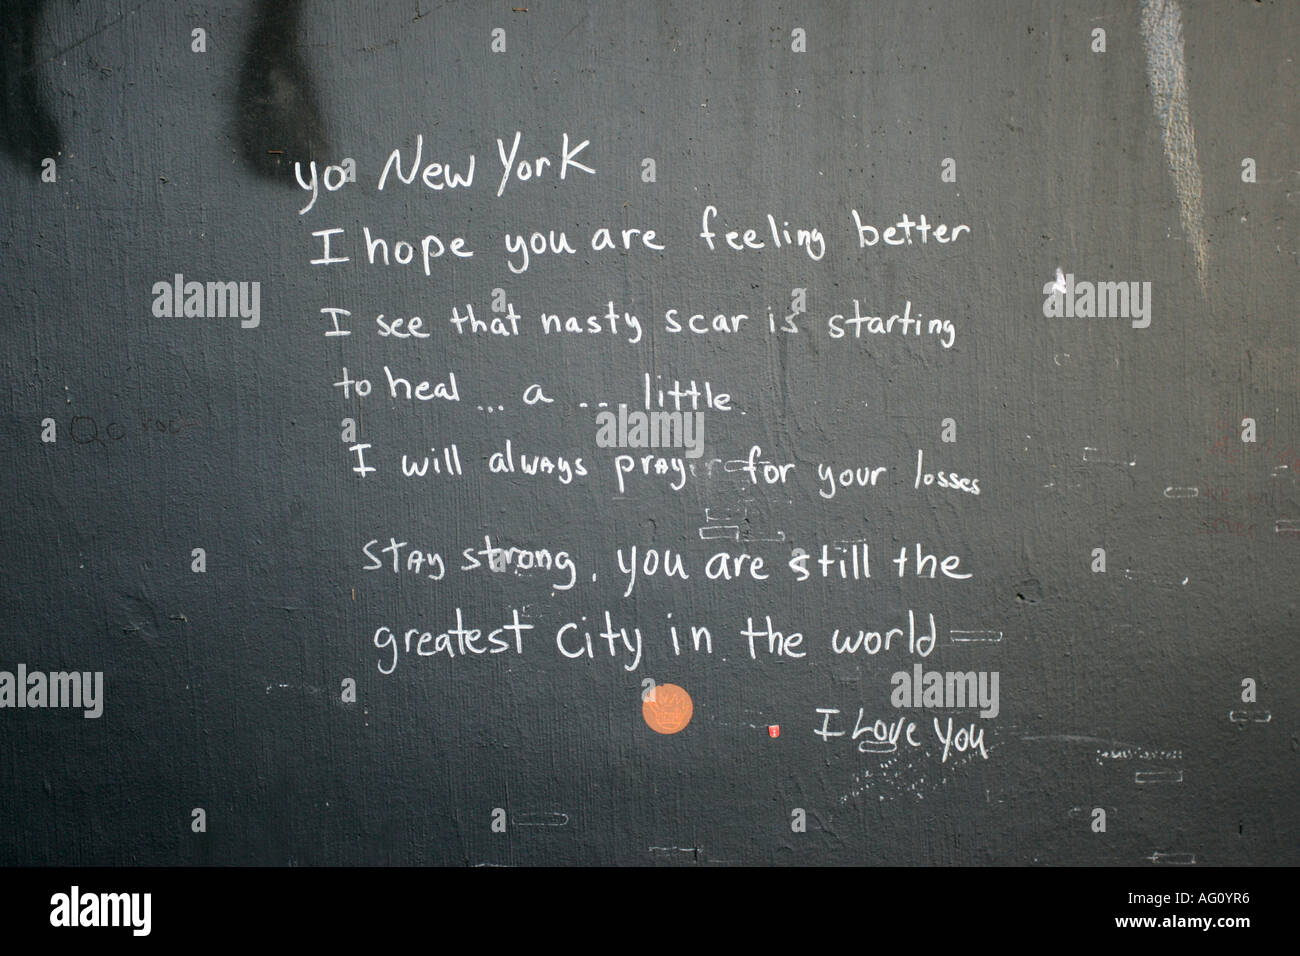 yo New York
I hope you are feeling better
I see that nasty scar is starting
to heal ... a ... little.
I will always prayer for your losses
stay strong. you are still the
greatest city in the world
I Love You
alamy
alamy
alamy
alamy
alamy
a
alamy
Image ID: AG0YR6
www.alamy.com